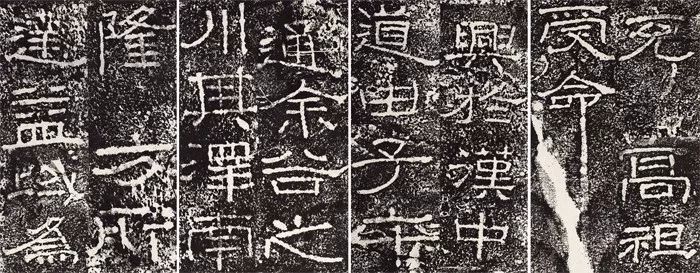 充高祖
受命
興於漢中
道由子午
通余谷之
川其澤南
隆方所
達益域為